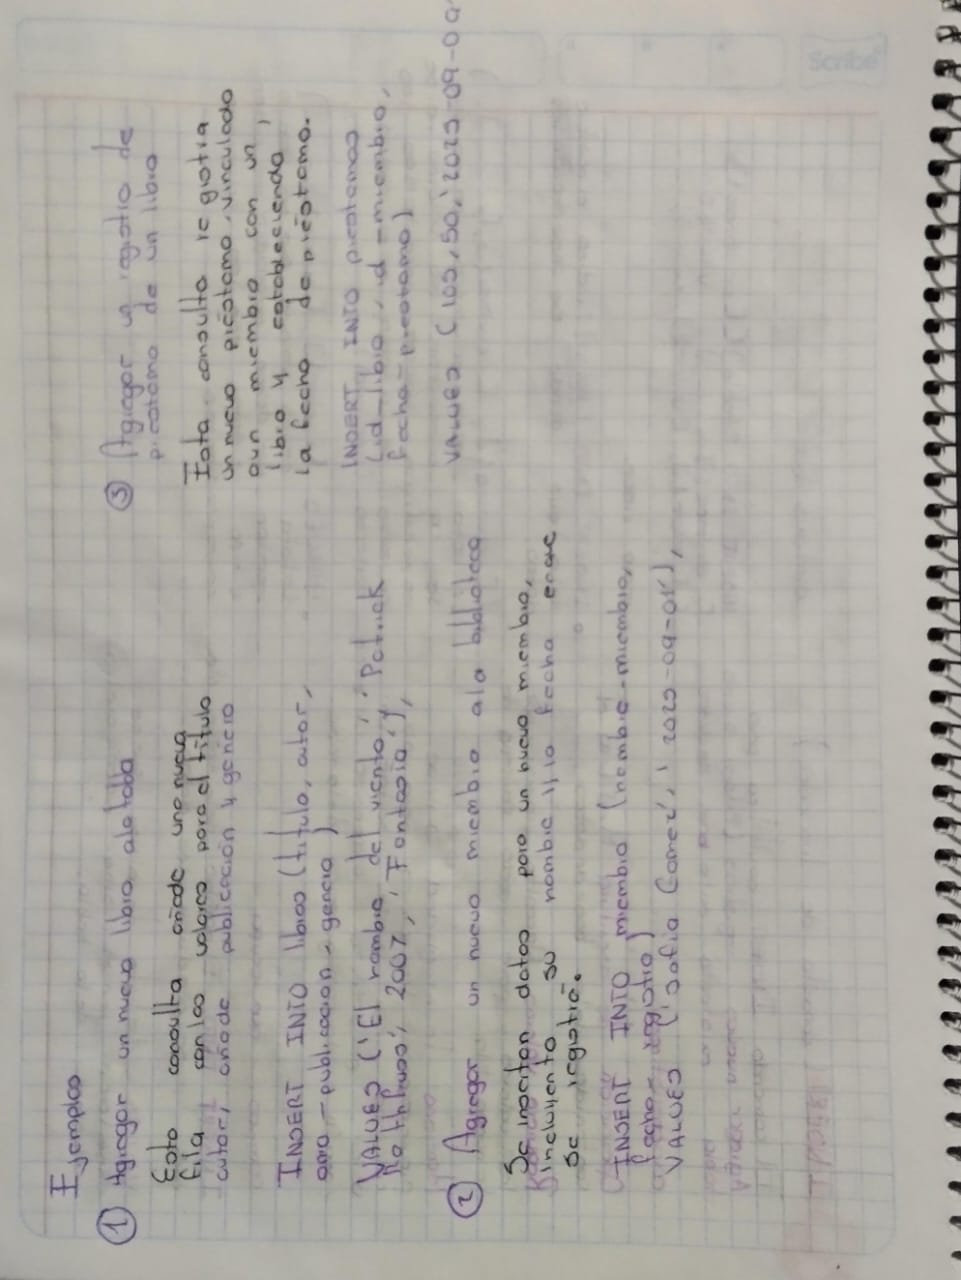 Ejemplos
① Agregar un nuevo libro ala tabla
Esta consulta añade una nueva
fila con los valores para el titulo
autor, año de publicación y genero
INSERT INTO libros (titulo, autor,
ano-publicacion, genero)
VALUES ('El nombre del viento', 'Patrick
2007, 'Fantasia'),
② Agregar un nuevo miembro ala biblioteca
Se insertan datos para un nuevo miembro,
incluyento su nombre y la fecha en que
se registró.
INSERT INTO miembro (nombre-miembro,
fecha-registro)
VALUES ('Sofia Gomez', '2023-09-01'),
③ Agregar un registro de
prestamo de un libro
Esta consulta registra
un nuevo préstamo, vinculado
a un miembro con un
libro y estableciendo,
la fecha de préstamo.
INSERT INTO prestamos
(id_libro, id-miembro,
fecha-prestamo)
VALUES (105, 50, '2023-09-0
Scribe